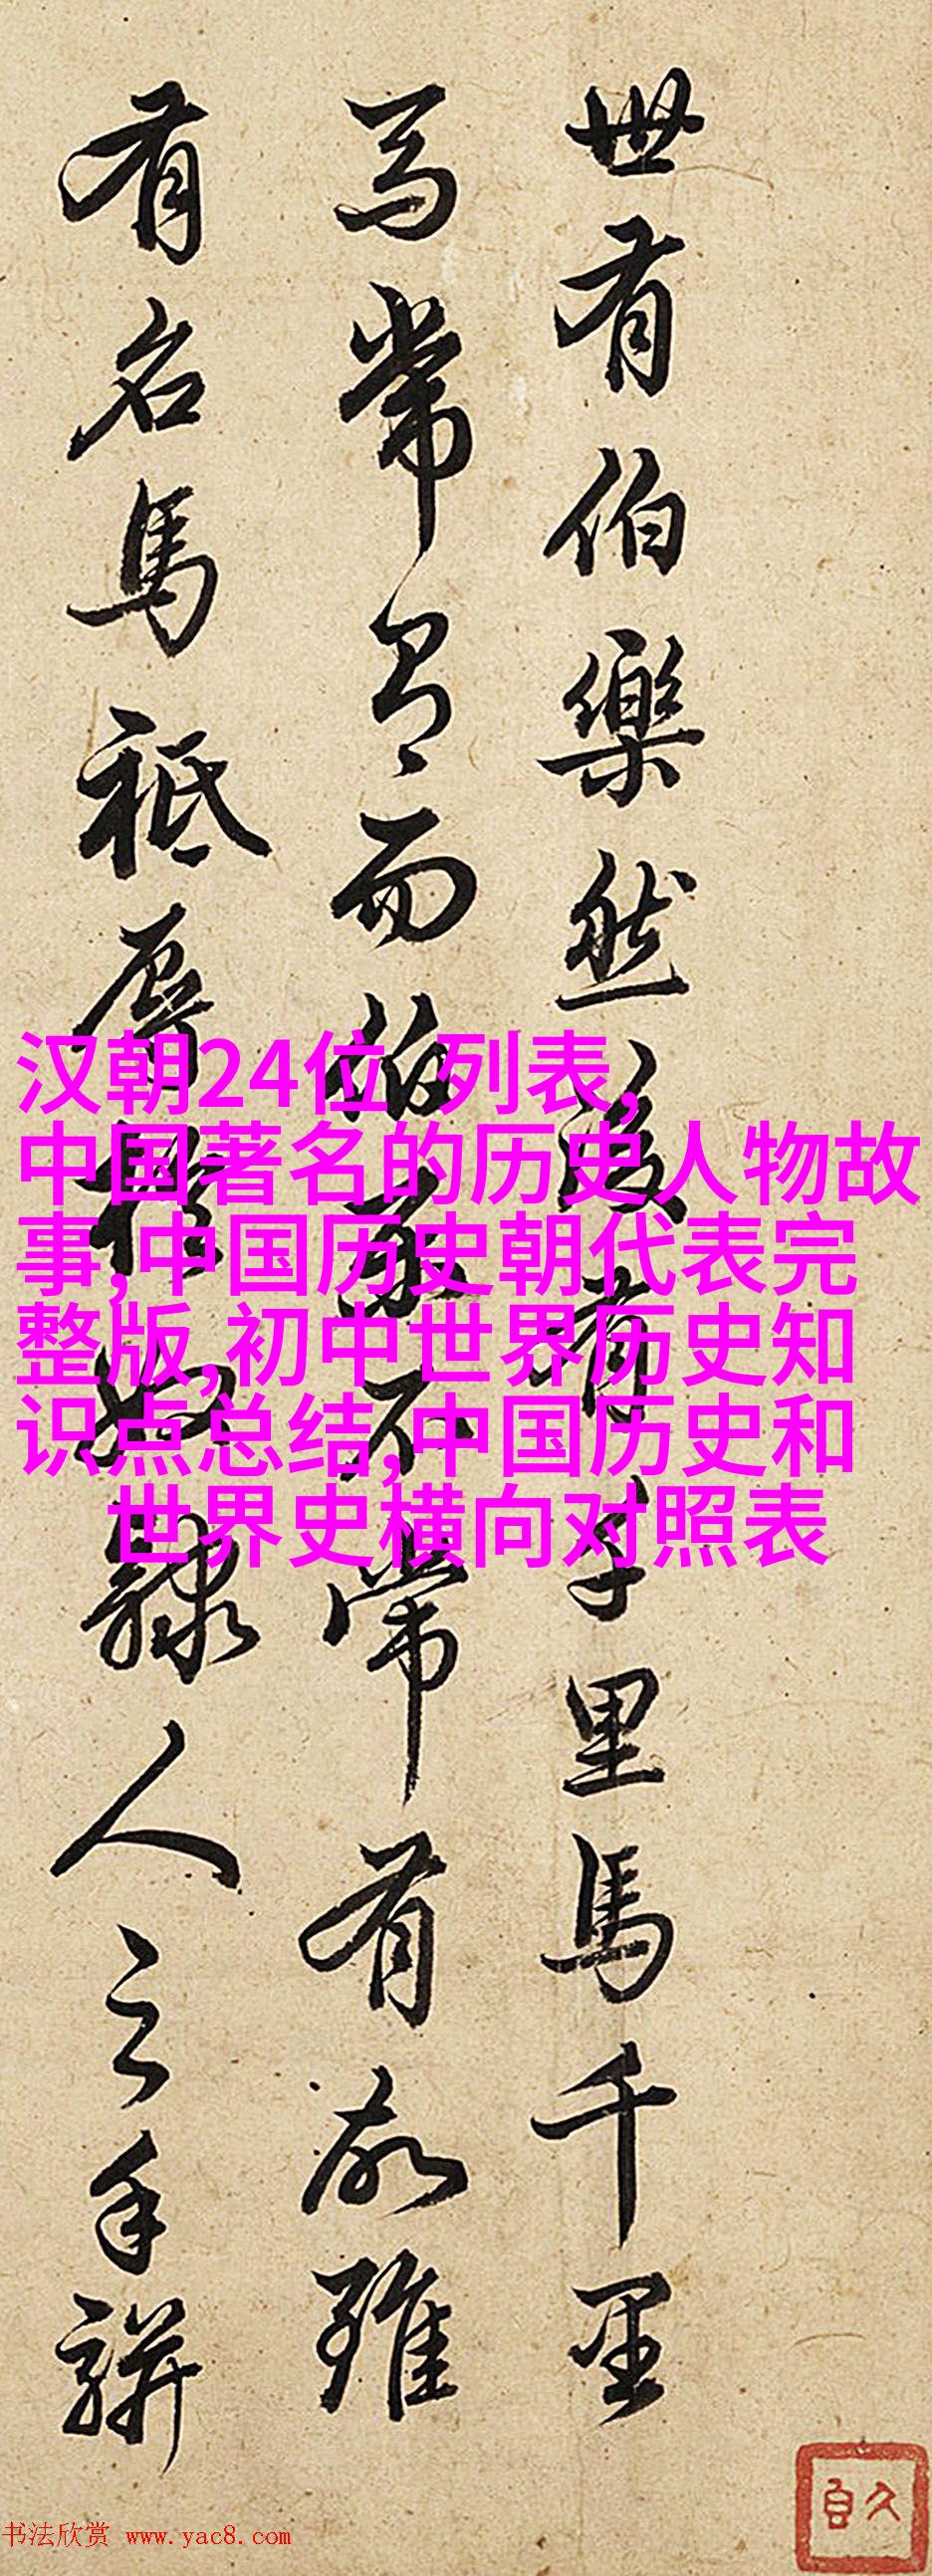 世有伯樂然後有千里馬千里
馬常有而伯樂不常有故雖
有名馬祗辱於奴隸人之手駢
汉朝24位 列表,
中国著名的历史人物故
事,中国历史朝代表完
整版,初中世界历史知
识点总结,中国历史和
世界史横向对照表
书法欣赏 www.yac8.com